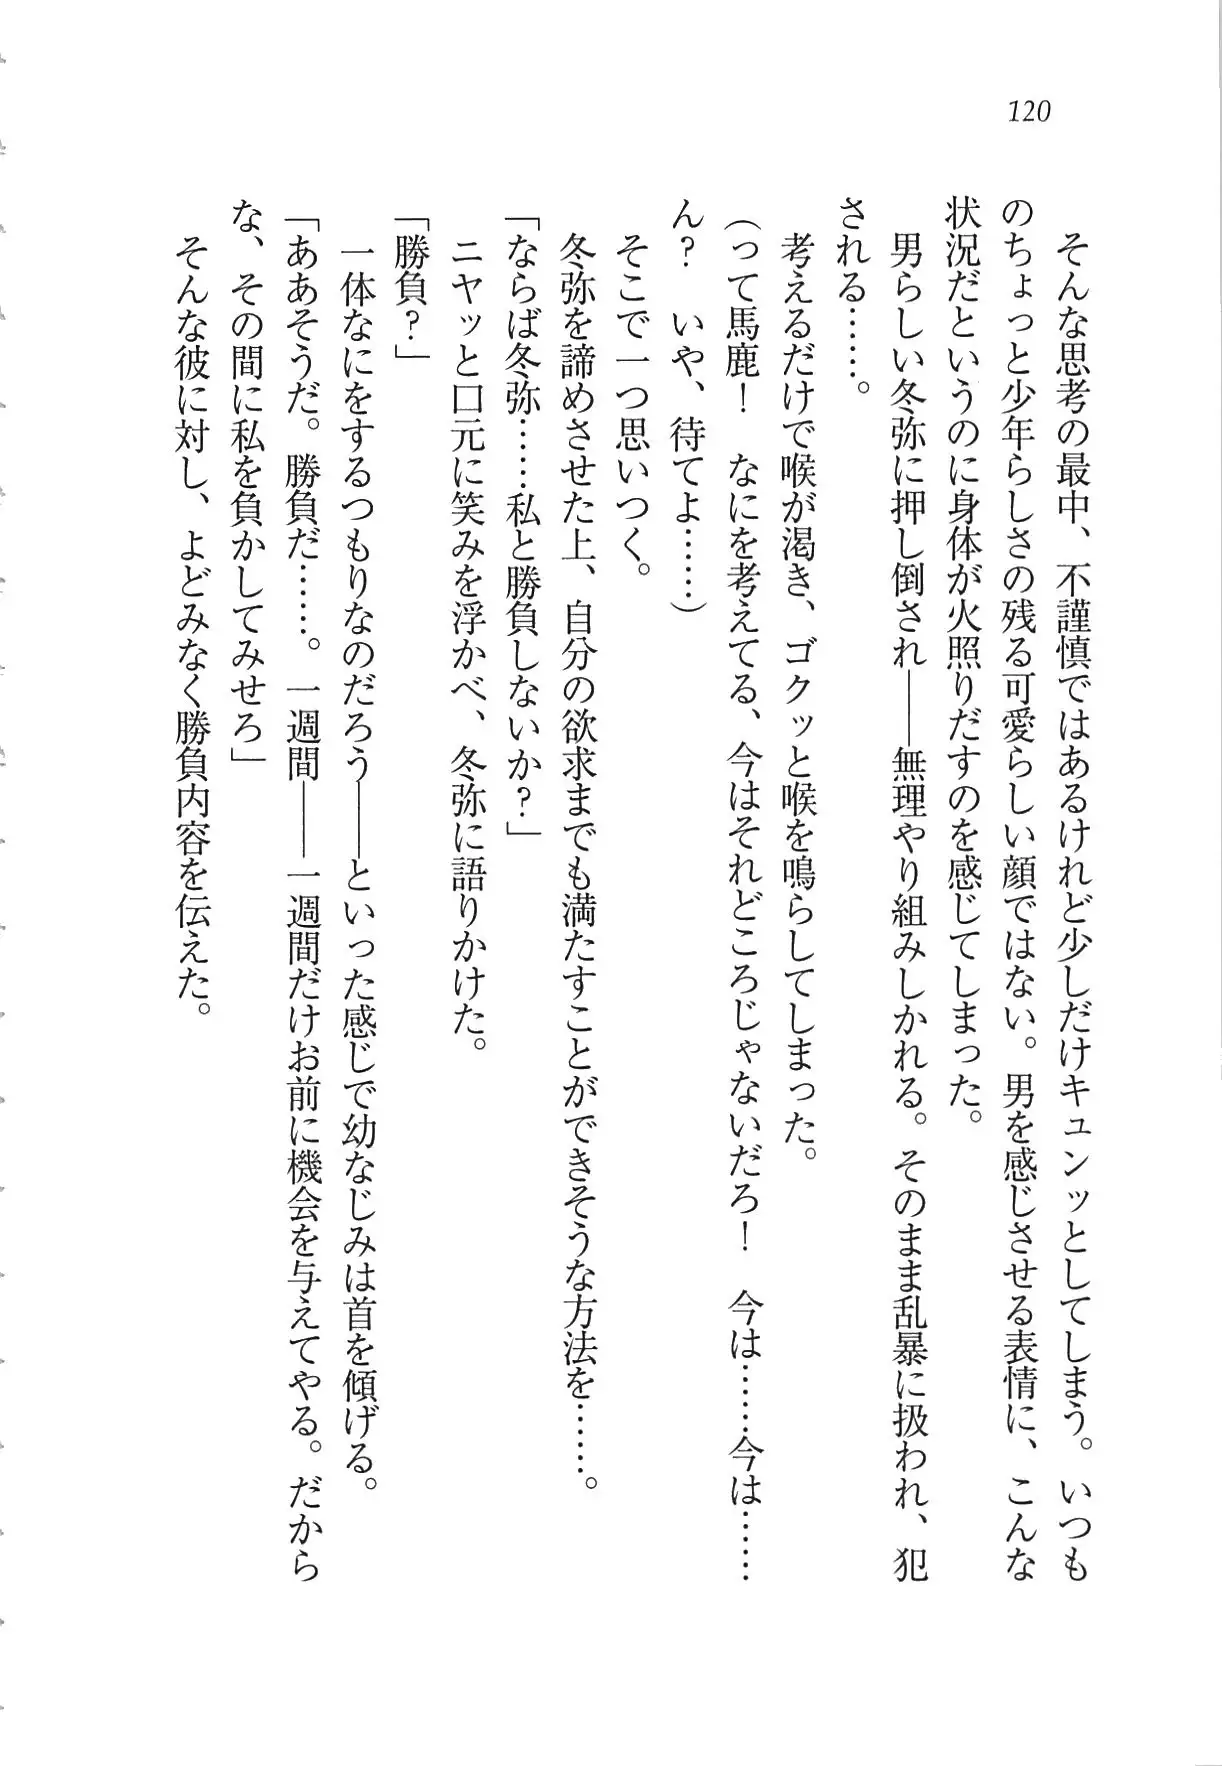 120
そんな思考の最中、不謹慎ではあるけれど少しだけキュンッとしてしまう。いつも
のちょっと少年らしさの残る可愛らしい顔ではない。男を感じさせる表情に、こんな
状況だというのに身体が火照りだすのを感じてしまった。
男らしい冬弥に押し倒され――無理やり組みしかれる。そのまま乱暴に扱われ、犯
される……。
考えるだけで喉が渇き、ゴクッと喉を鳴らしてしまった。
(って馬鹿！　なにを考えてる、今はそれどころじゃないだろ！　今は……今は……
ん？　いや、待てよ……)
そこで一つ思いつく。
冬弥を諦めさせた上、自分の欲求までも満たすことができそうな方法を……。
「ならば冬弥……私と勝負しないか？」
ニヤッと口元に笑みを浮かべ、冬弥に語りかけた。
「勝負？」
一体なにをするつもりなのだろう――といった感じで幼なじみは首を傾げる。
「ああそうだ。勝負だ……。一週間――一週間だけお前に機会を与えてやる。だから
な、その間に私を負かしてみせろ」
そんな彼に対し、よどみなく勝負内容を伝えた。